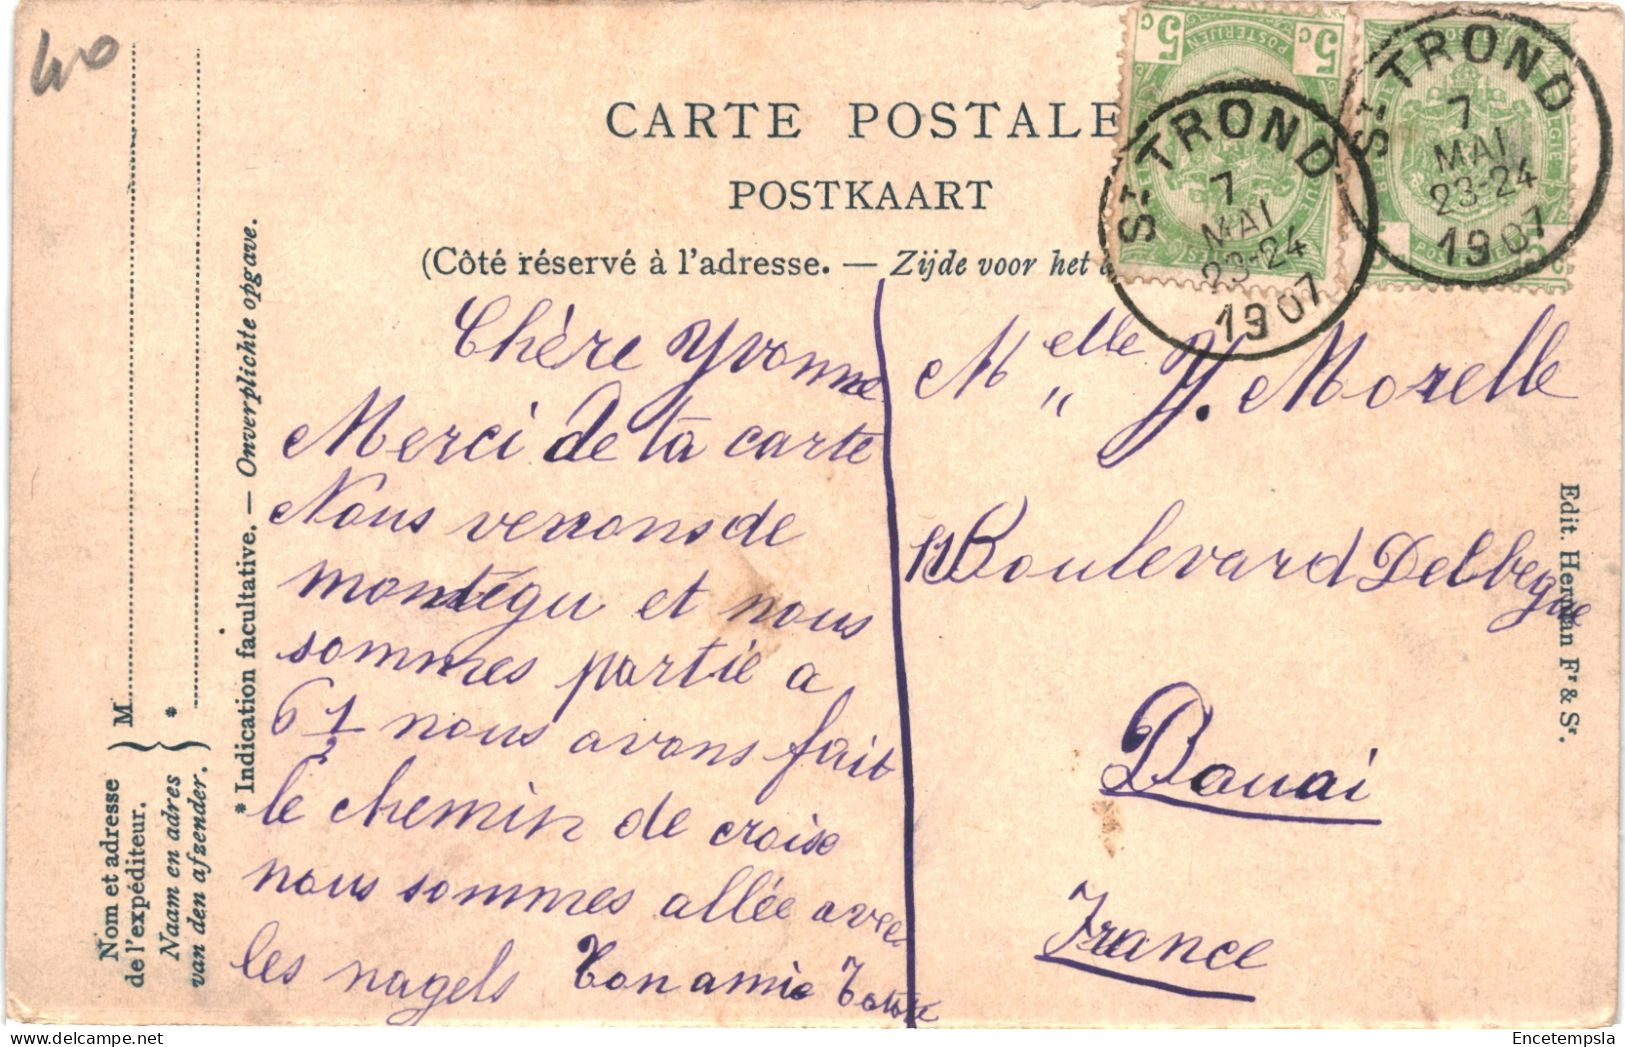 40
CARTE POSTALE
POSTKAART
(Côté réservé à l'adresse. — Zijde voor het
ST TROND
7
MAI
23-24
1907
ST TROND
7
MAI
23-24
1907
5c 5c
POSTERIJEN
Chère Yvonne
Merci de ta carte
Nous venons de
montégu et nous
sommes partie a
6 1/2 nous avons fait
le chemin de croix
nous sommes allée avec
les nagels ton amie
Melle Y. Morelle
11 Boulevard Delbegue
Douai
France
Edit. Herman Fr & Sr.
* Indication facultative. — Onverplichte opgave.
Nom et adresse
de l'expéditeur.
Naam en adres
van den afzender.
M
*
Encetempsla